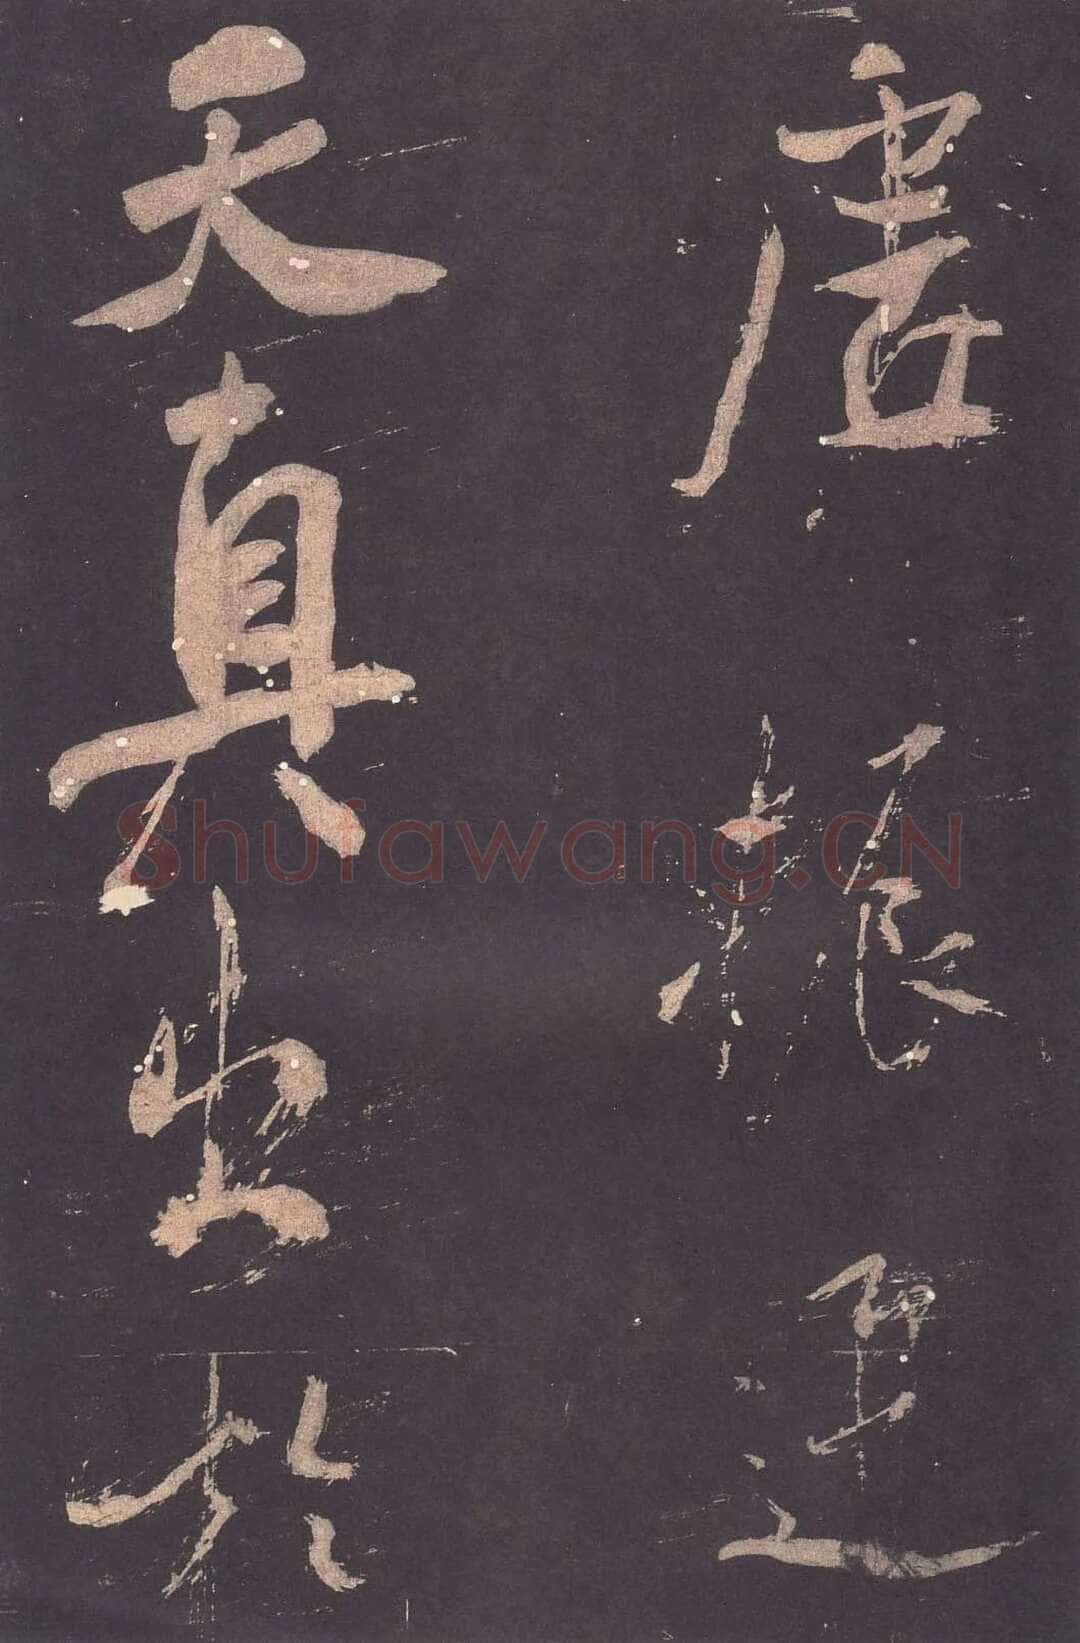 唐運
天真出於
Shufawang.CN